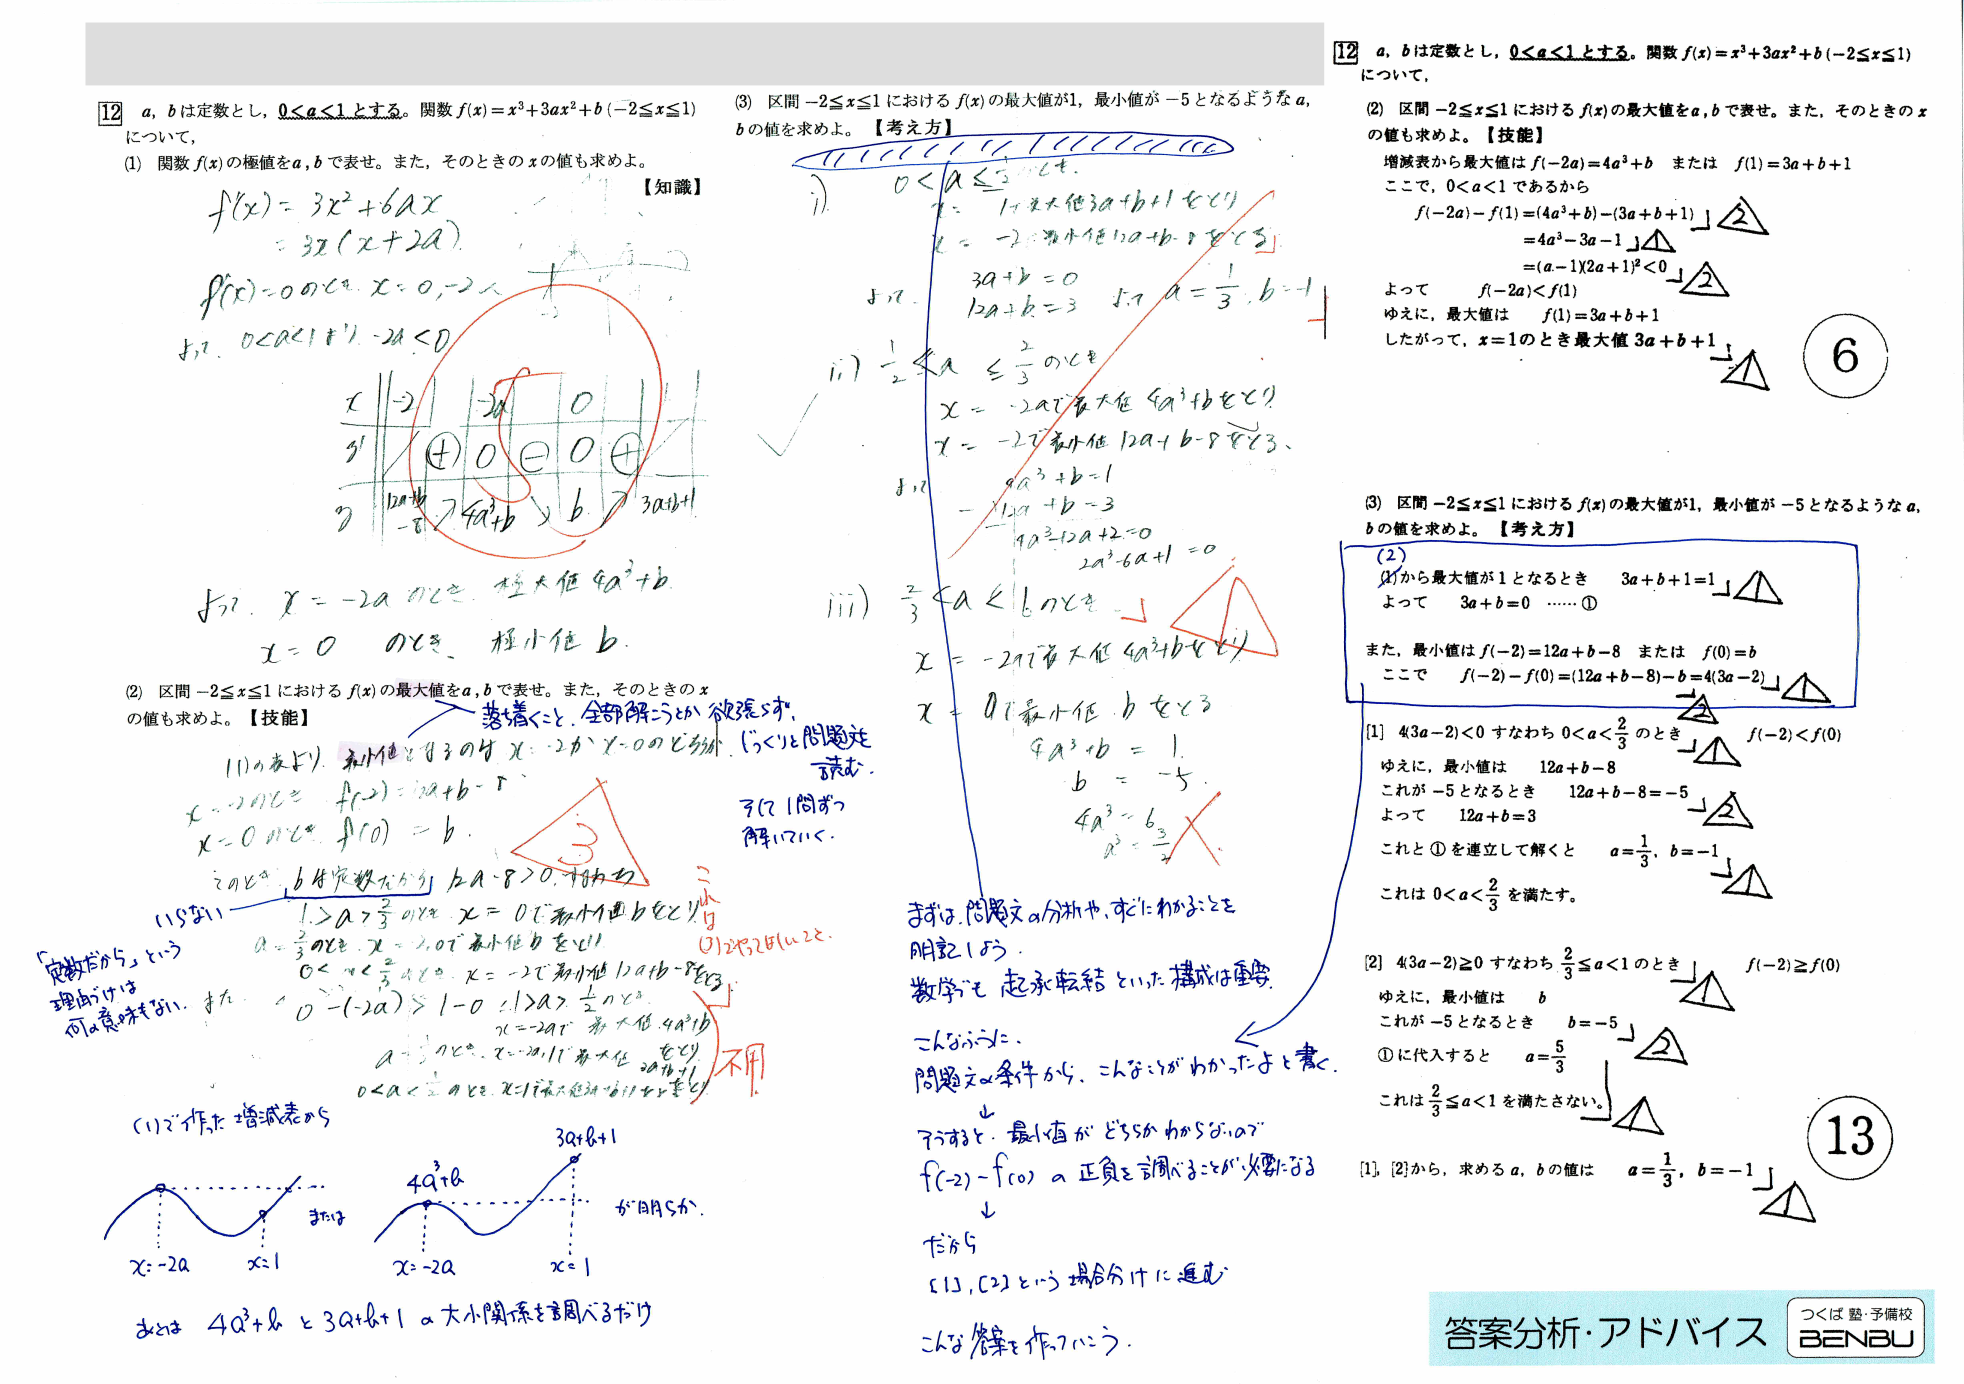 12 a, bは定数とし, 0<a<1とする。関数 f(x)=x³+3ax²+b (−2≦x≦1)
について,
(1) 関数 f(x)の極値をa, bで表せ。また, そのときのxの値も求めよ。
【知識】
f'(x) = 3x²+6ax
= 3x(x+2a)
f'(x)=0のとき x=0, -2a
よって 0<a<1より -2a<0
x -2 -2a 0
y' + 0 − 0 +
y 12a+b-8 ↗ 4a³+b ↘ b ↗ 3a+b+1
よって. x = -2a のとき. 極大値 4a³+b.
x = 0 のとき、極小値 b.
(2) 区間 −2≦x≦1における f(x)の最大値をa, bで表せ。また, そのときのx
の値も求めよ。【技能】
落ち着くこと. 全部解こうとか欲張らず,
じっくりと問題文を
読む.
そして1問ずつ
解いていく.
(1)の表より. 最小値となるのは x=-2か x=0のどちらか.
x=-2のとき f(-2)=12a+b-8
x=0のとき f(0) = b.
3
このとき bは定数だから 12a-8>0. すなわち
いらない
「定数だから」という
理由づけは
何の意味もない.
1>a>2/3のとき x=0で最小値bをとり
a=2/3のとき. x=-2,0で最小値bをとり
0<a<2/3のとき. x=-2で最小値12a+b-8をとる
これは
(3)でやってほしいこと.
また 0-(-2a)>1-0 ∴1>a>1/2のとき.
x=-2aで 最大値 4a³+b
をとり
a=1/2のとき. x=-2a,1で最大値 3a+b+1
0<a<1/2のとき. x=1で最大値3a+b+1をとる
不用
(1)で作った増減表から
4a³+b
3a+b+1
または
が明らか.
x=-2a x=1 x=-2a x=1
あとは 4a³+b と 3a+b+1 の大小関係を調べるだけ
(3) 区間 −2≦x≦1における f(x)の最大値が1, 最小値が −5となるようなa,
bの値を求めよ。【考え方】
i) 0<a≦1/2のとき.
x = 1で最大値3a+b+1をとり
x = -2で最小値12a+b-8をとる.
3a+b=0
12a+b=3
よって a=1/3, b=-1
ii) 1/2≦a≦2/3のとき
x = -2aで最大値 4a³+bをとり
x = -2で最小値12a+b-8をとる、
よって 4a³+b=1
- 12a+b=3
4a³-12a+2=0
2a³-6a+1=0
iii) 2/3<a<1のとき
x = -2aで最大値4a³+bをとり
x = 0で最小値 bをとる
4a³+b = 1
b = -5.
4a³=6
a³=3/2
まずは、問題文の分析や、すぐにわかることを
明記しよう.
数学でも 起承転結といった構成は重要.
こんなふうに、
問題文の条件から、こんなことがわかったよと書く.
↓
そうすると、最小値がどちらかわからないので
f(-2)-f(0) の正負を調べることが必要になる
↓
だから
[1], [2] という場合分けに進む
こんな答案を作っていこう.
12 a, bは定数とし, 0<a<1とする。関数 f(x)=x³+3ax²+b (−2≦x≦1)
について,
(2) 区間 −2≦x≦1における f(x)の最大値をa, bで表せ。また, そのときのx
の値も求めよ。【技能】
増減表から最大値は f(−2a)=4a³+b または f(1)=3a+b+1
ここで, 0<a<1であるから
f(−2a)−f(1)=(4a³+b)−(3a+b+1) 2
=4a³−3a−1 1
=(a−1)(2a+1)²<0 2
よって f(−2a)<f(1)
ゆえに, 最大値は f(1)=3a+b+1
したがって, x=1のとき最大値 3a+b+1 1
6
(3) 区間 −2≦x≦1における f(x)の最大値が1, 最小値が −5となるようなa,
bの値を求めよ。【考え方】
(2)
(1)から最大値が1となるとき 3a+b+1=1 1
よって 3a+b=0 ……①
また, 最小値は f(−2)=12a+b−8 または f(0)=b
ここで f(−2)−f(0)=(12a+b−8)−b=4(3a−2) 1
2
[1] 4(3a−2)<0 すなわち 0<a<2/3 のとき 1 f(−2)<f(0)
ゆえに, 最小値は 12a+b−8
これが −5となるとき 12a+b−8=−5 2
よって 12a+b=3
これと①を連立して解くと a=1/3, b=−1 1
これは 0<a<2/3 を満たす。
[2] 4(3a−2)≧0 すなわち 2/3≦a<1のとき 1 f(−2)≧f(0)
ゆえに, 最小値は b
これが −5となるとき b=−5 2
①に代入すると a=5/3
これは 2/3≦a<1を満たさない。 1
13
[1], [2]から, 求めるa, bの値は a=1/3, b=−1 1
答案分析・アドバイス
つくば 塾・予備校
BENBU